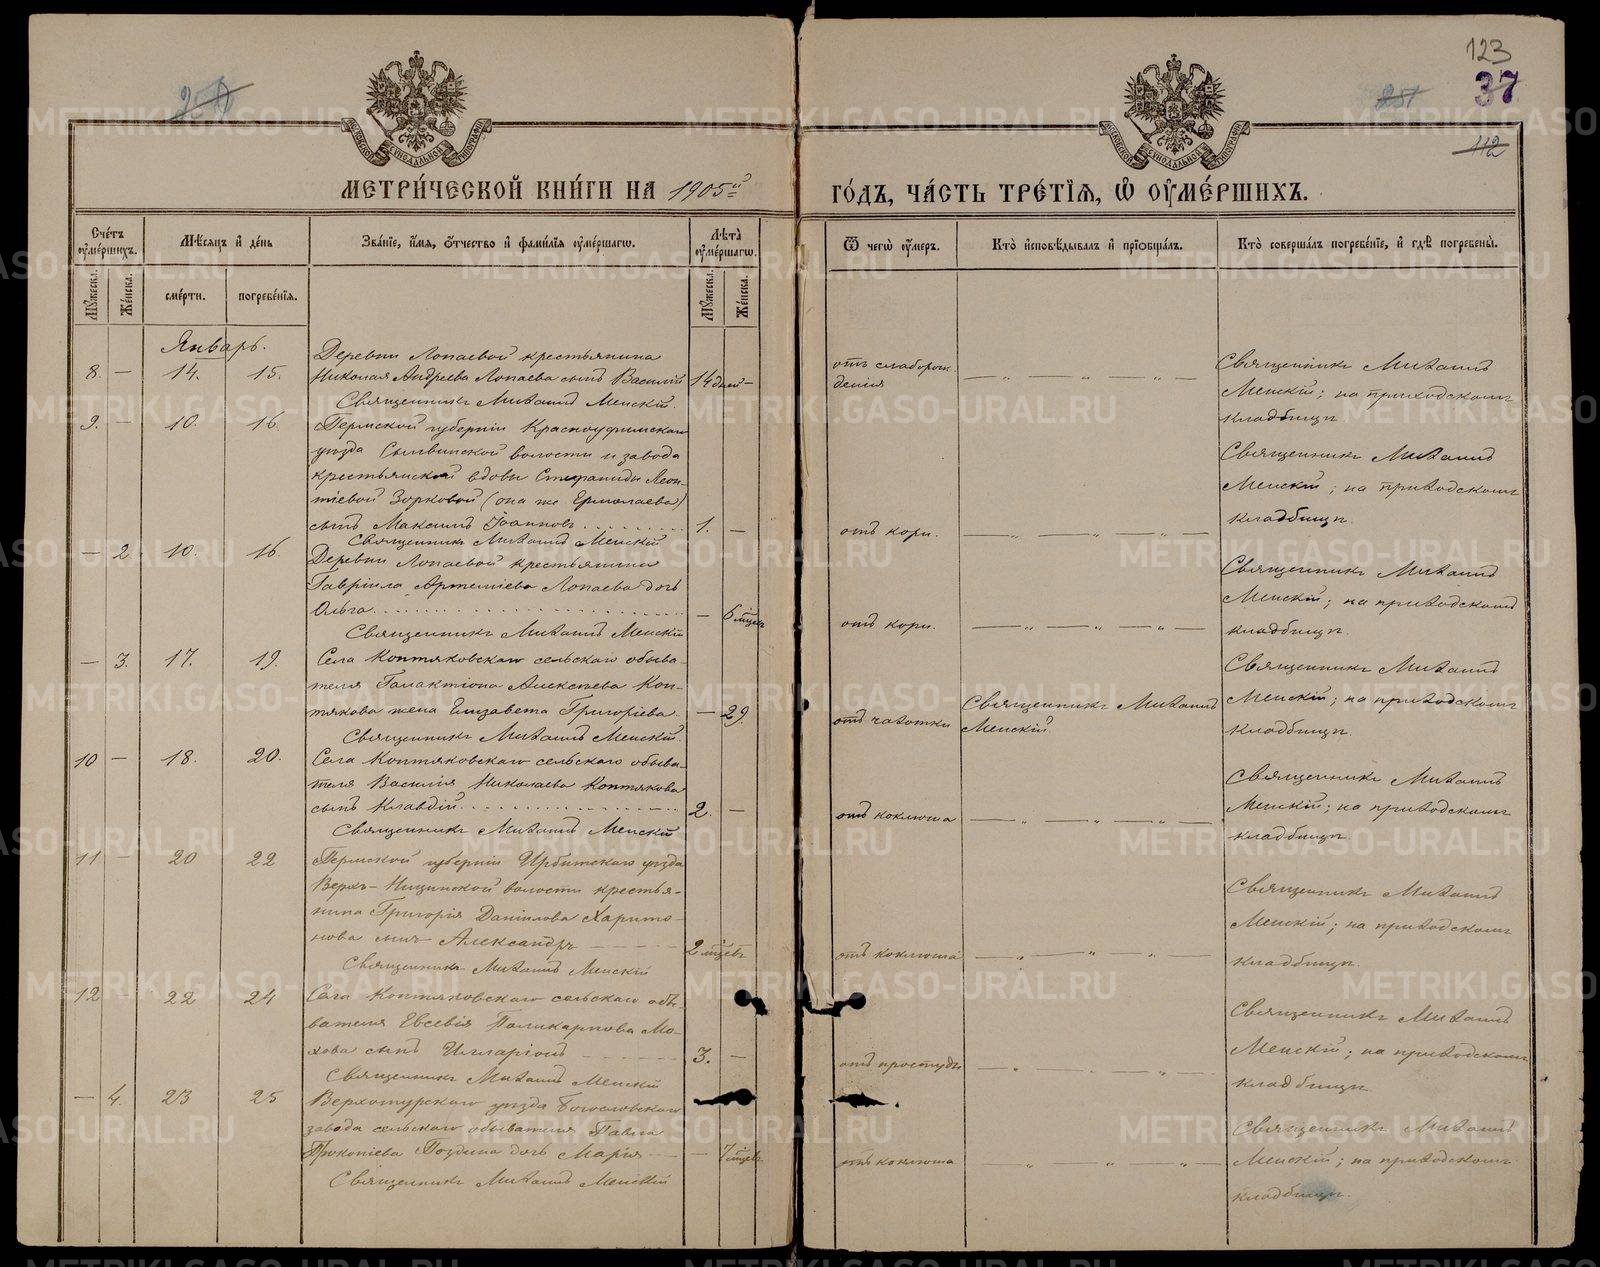 251
251
123
37
112
МЕТРИ́ЧЕСКОЙ КНИ́ГИ НА 1905й
ГО́ДЪ, ЧА́СТЬ ТРЕ́ТІѦ, Ѽ ОУ҆МЕ́РШИХЪ.
Сче́тъ оу҆ме́ршихъ.
Мѣ́сяцъ и҆ де́нь
Зва́ніе, и҆́мя, ѻ҆́тчество и҆ фами́лія оу҆ме́ршагѡ.
Лѣ́та оу҆ме́ршагѡ.
Ѿ чегѡ̀ оу҆́меръ.
Кто̀ и҆сповѣ́дывалъ и҆ прїѡбща́лъ.
Кто̀ соверша́лъ погребе́ніе, и҆ гдѣ̀ погребены̀.
Му́жеска.
Же́нска.
сме́рти.
погребе́нія.
Му́жеска.
Же́нска.
Январь.
8. — 14. 15.
Деревни Лопаевой крестьянина
Николая Андреева Лопаева сынъ Василій 14 дней —
Священникъ Михаилъ Менскій.
отъ слаборож-
денія
Священникъ Михаилъ
Менскій; на приходскомъ
кладбищѣ
9. — 10. 16.
Пермской губерніи Красноуфимскаго
уѣзда Сылвинской волости и завода
крестьянской вдовы Стефаниды Леон-
тіевой Зорковой (она же Ермолаева)
сынъ Максимъ Іоанновъ 1. —
Священникъ Михаилъ Менскій
отъ кори.
Священникъ Михаилъ
Менскій; на приходскомъ
кладбищѣ.
— 2 10. 16.
Деревни Лопаевой крестьянина
Гавріила Артеміева Лопаева дочь
Ольга — 6 мцевъ
Священникъ Михаилъ Менскій
отъ кори.
Священникъ Михаилъ
Менскій; на приходскомъ
кладбищѣ.
— 3. 17. 19.
Села Коптяковскаго сельскаго обыва-
теля Галактіона Алексѣева Коп-
тякова жена Елизавета Григоріева — 29.
Священникъ Михаилъ Менскій.
отъ чахотки
Священникъ Михаилъ
Менскій.
Священникъ Михаилъ
Менскій; на приходскомъ
кладбищѣ.
10 — 18. 20.
Села Коптяковскаго сельскаго обыва-
теля Василія Николаева Коптякова
сынъ Клавдій 2. —
Священникъ Михаилъ Менскій
отъ коклюша
Священникъ Михаилъ
Менскій; на приходскомъ
кладбищѣ.
11 — 20 22
Пермской губерніи Ирбитскаго уѣзда
Верхъ-Ницинской волости крестья-
нина Григорія Даніилова Харито-
нова сынъ Александръ 2 мцевъ
Священникъ Михаилъ Менскій
отъ коклюша
Священникъ Михаилъ
Менскій; на приходскомъ
кладбищѣ.
12 — 22 24
Села Коптяковскаго сельскаго обы-
вателя Евсевія Поликарпова Мо-
хова сынъ Илларіонъ 3. —
Священникъ Михаилъ Менскій
отъ простуды
Священникъ Михаилъ
Менскій; на приходскомъ
кладбищѣ
— 4. 23 25
Верхотурскаго уѣзда Богословскаго
завода сельскаго обывателя Павла
Прокопіева Поздина дочь Марія — 7 мцевъ
Священникъ Михаилъ Менскій
отъ коклюша
Священникъ Михаилъ
Менскій; на приходскомъ
кладбищѣ.
METRIKI.GASO-URAL.RU